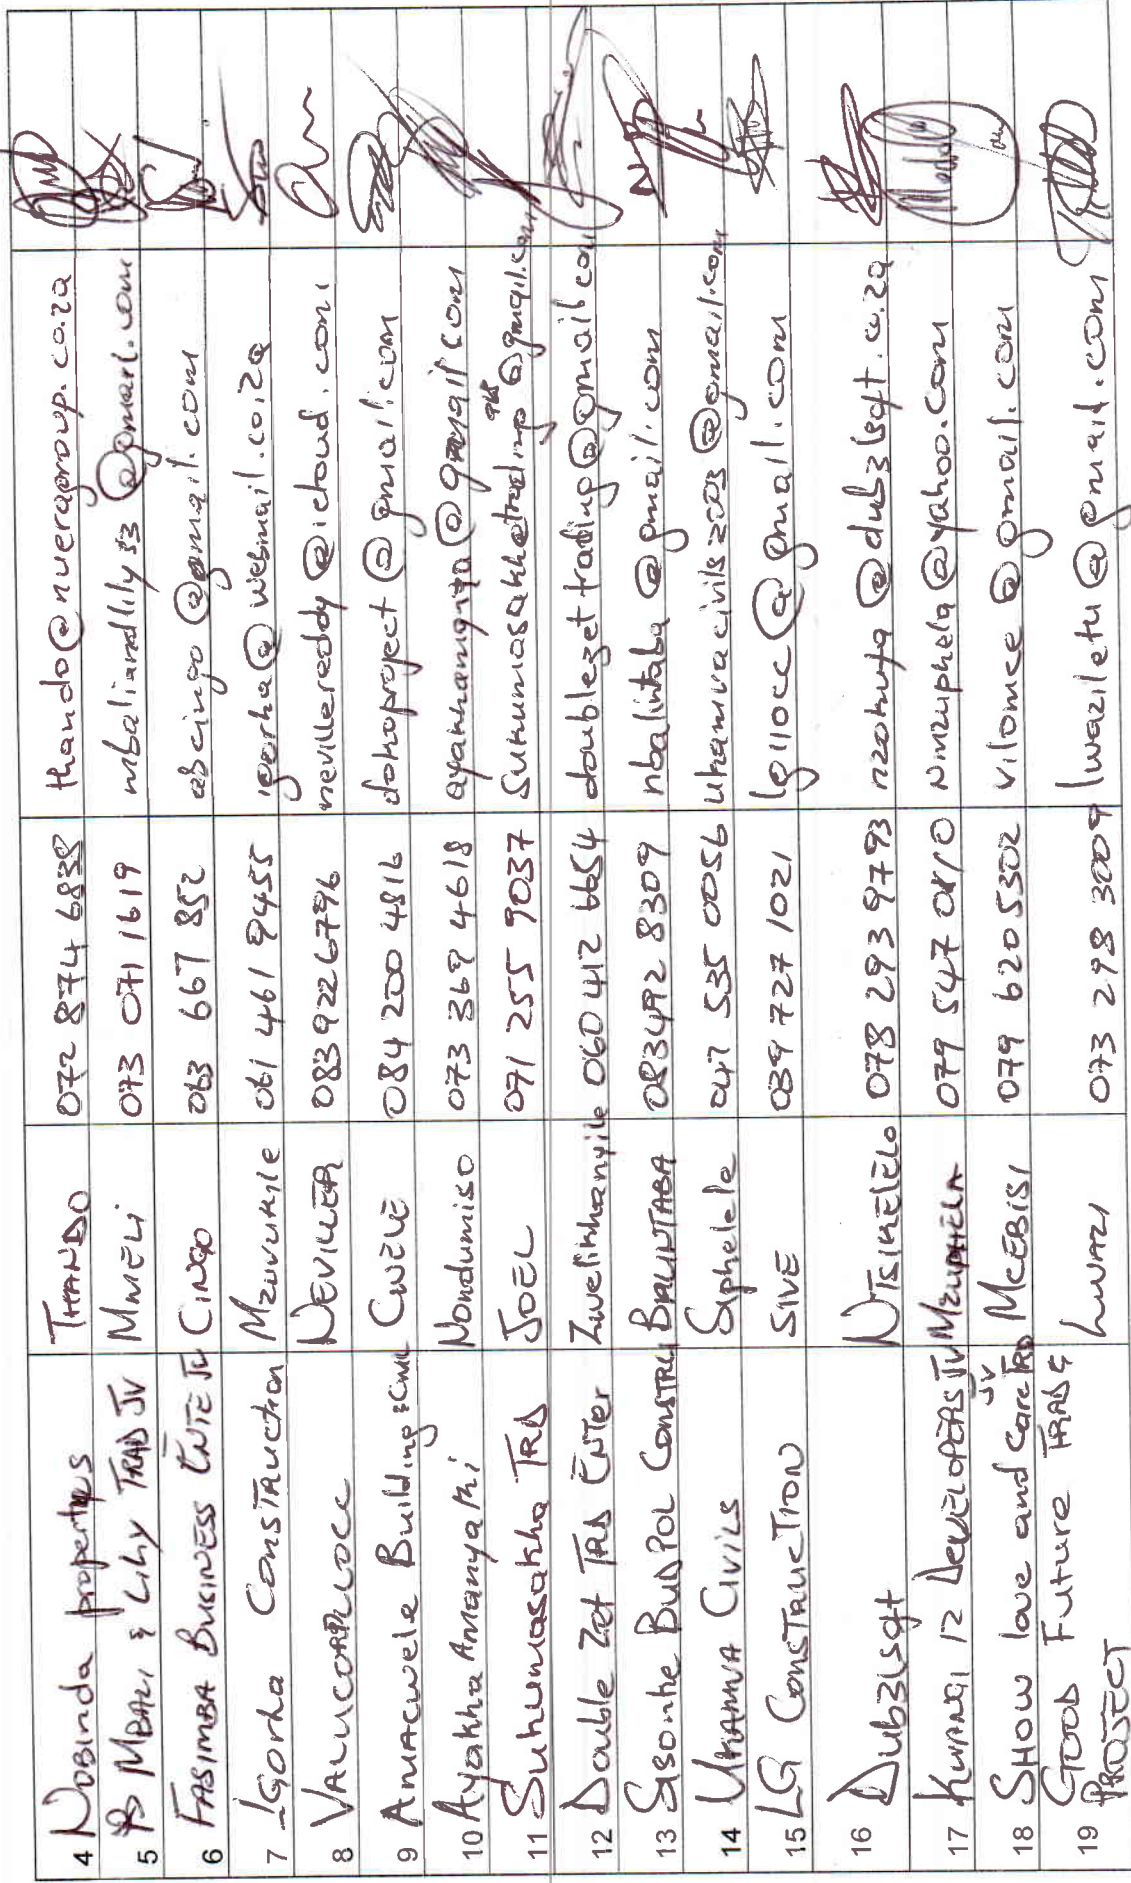 4 Nobinda properties THANDO 072 874 6838 thando@nueragroup.co.za
5 MBALI & LILY TRAD JV MMELI 073 071 1619 mbaliandlily53@gmail.com
6 FASIMBA BUSINESS ENTE JV CINGO 063 667 852 abcingo@gmail.com
7 IGorha CONSTRUCTION Mzuvukile 061 461 9455 igorha@webmail.co.za
8 VALUCORPLOCC NEVILLER 083 922 6796 nevillereddy@icloud.com
9 AMACWELE Building & CIVIL CWELE 084 200 4816 dokoproject@gmail.com
10 Ayakha Amanyaki Nondumiso 073 369 4618
11 Sukumasakha TRD JOEL 071 255 9037
12 Double Zet TRD ENTer Zwelinkhanyile 060 412 6654 doublezettrading@gmail.com
13 BUDPOL CONSTRU BALINTABA 083492 8309 nbalintaba@gmail.com
14 UKAMVA CIVILS Siphelele 047 535 0056 ukamvacivils2003@gmail.com
15 LG CONSTRUCTION SIVE 039 727 1021 lg110cc@gmail.com
16 Dub3lsoft NTSIKELELO 078 293 9793 nzokuya@dub3lsoft.co.za
17 KWANGI 12 DEVELOPERS JV MZUPHELA 079 547 0810 Nmzuphela@yahoo.com
18 SHOW love and Care TRD JV MCEBISI 079 620 5302 vilomce@gmail.com
19 GOOD Future TRAD & PROJECT LWAZI 073 298 3009 lwaziletu@gmail.com